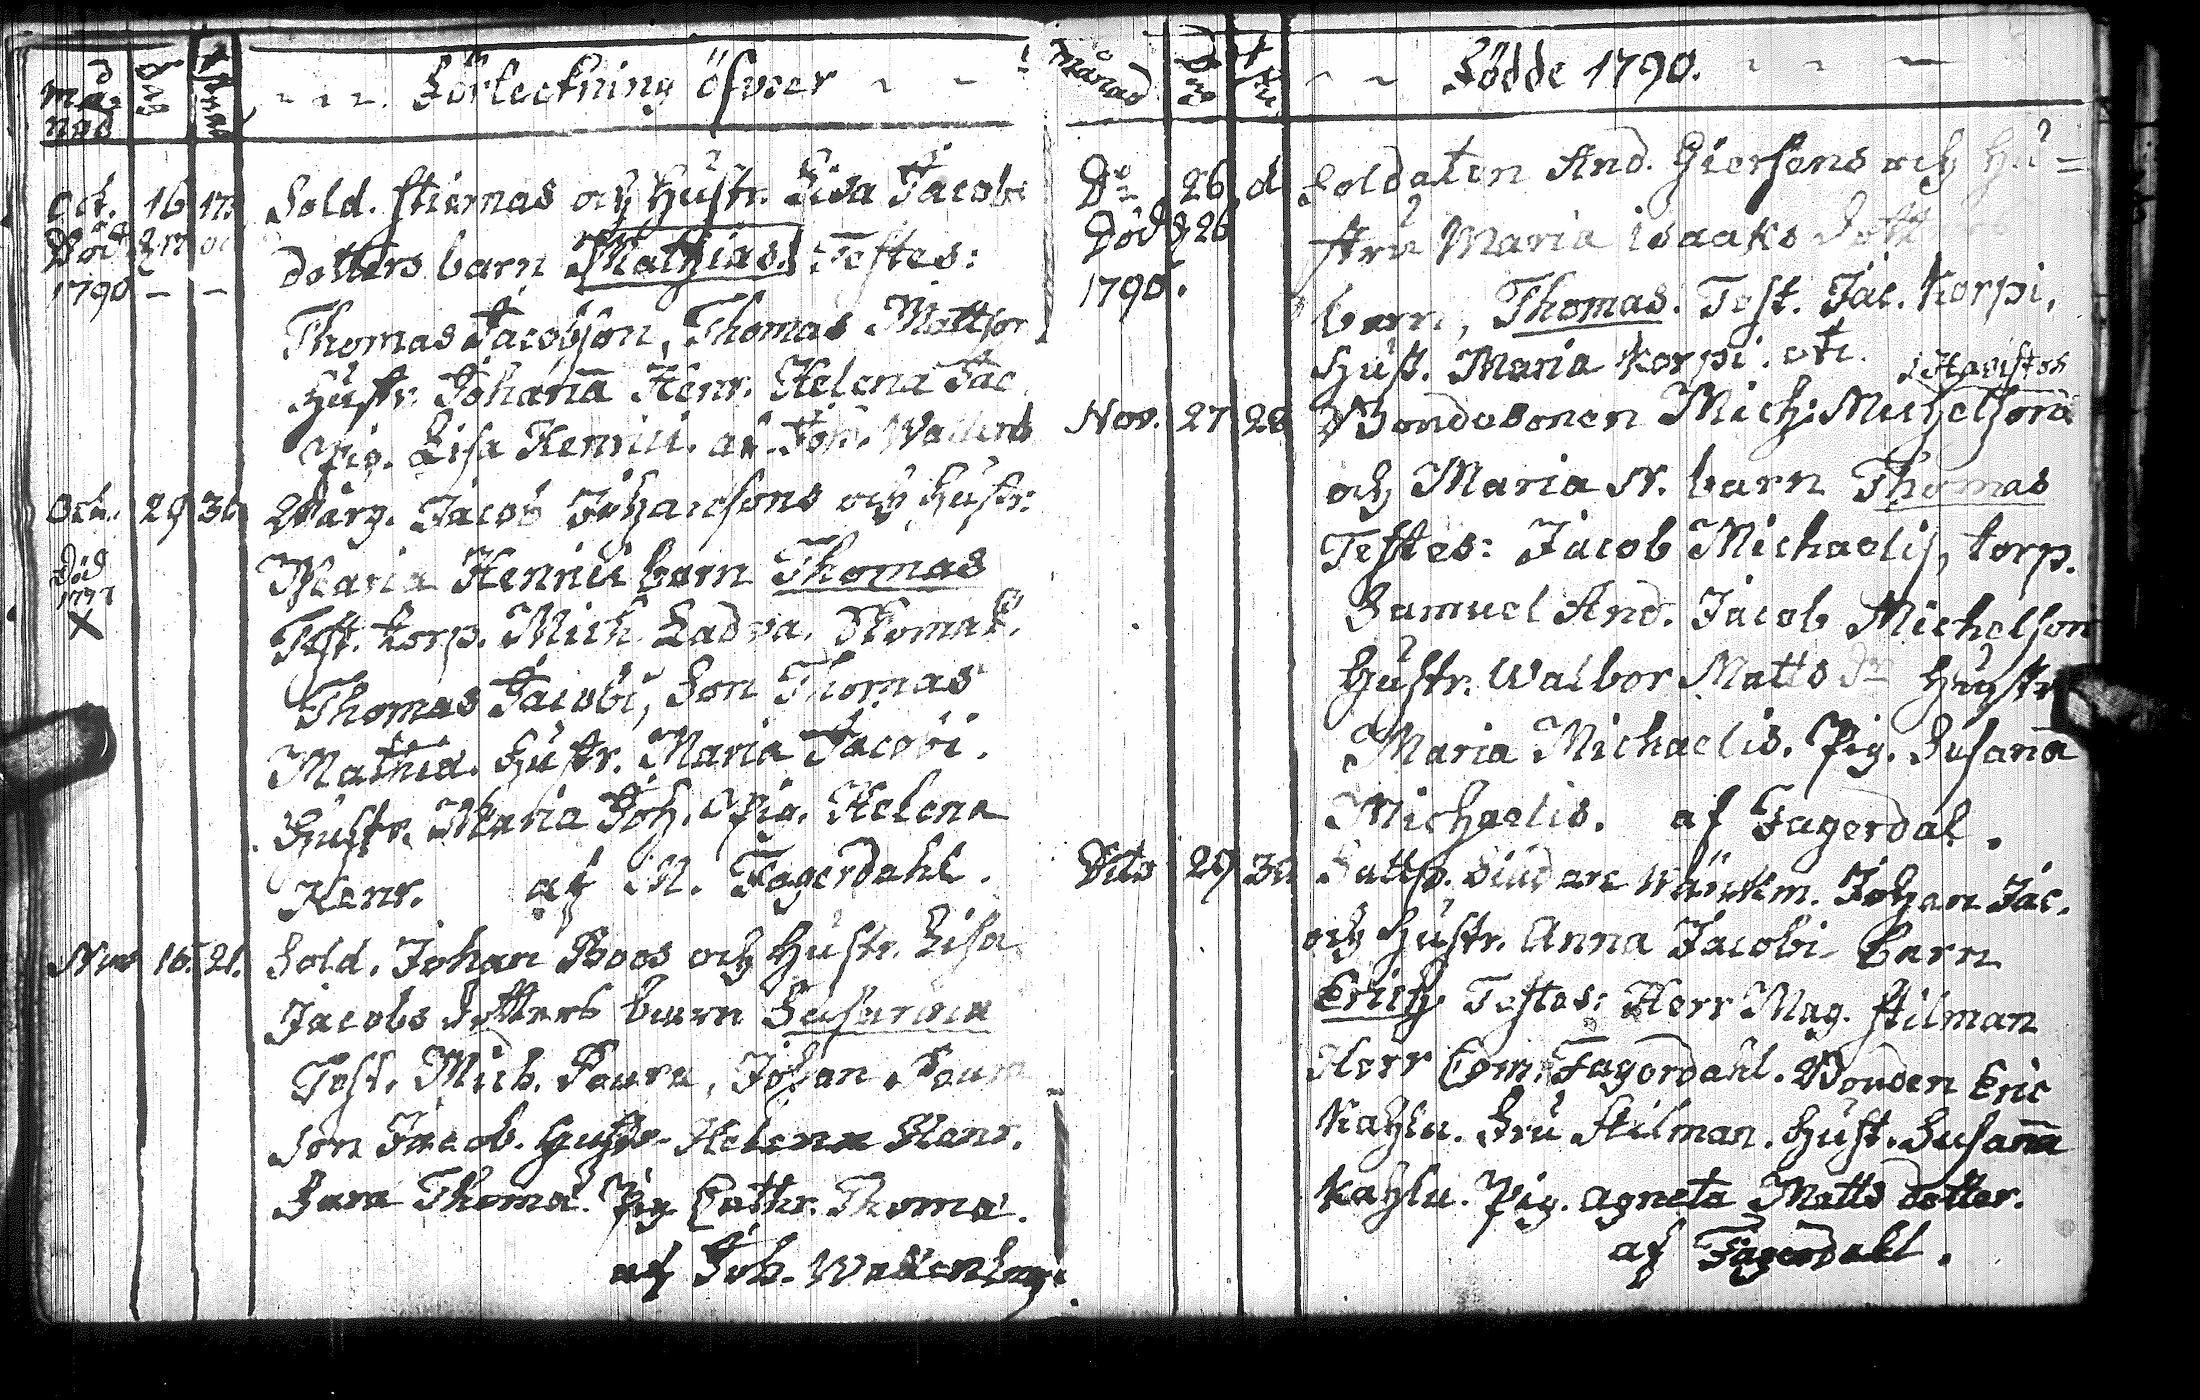 må-
nad
Dag
- - - Förteckning öfver - -
Oct. 16 17. Sold. Stiernas och Hustr. Lisa Jacobs
Död d. 17 dotters barn Mathias. Testes:
1790 - - Thomas Jacobson, Thomas Mattson
Hustr. Johaña Henr. Helena Jac.
Pig. Lisa Henrici. af Joh.
Oct. 29 30 Jacob Johansons och Hustr.
Död Maria Henrici barn Thomas
X Test. torp. Mich. Ladva.
Thomas Jacobi, Son Thomas
Hustr. Maria Jacobi.
Hustr. Maria Joh. Pig. Helena
Henr. af M. Fagerdahl.
Nov 16. 21. Sold. Johan Roos och Hustr. Lisa
Jacobs dotters barn
Test. Mich. Johan
son Jacob. Hustr. Helena Henr.
Sara Thomæ. Pig. Cathr. Thomæ.
af Joh.
Månad
- - Födde 1790. - - -
Do 26 d Soldaten And. Giersons och Hu=
Död d 26 stru Maria Isaaks dott
1790. barn, Thomas. Test. Jac. Korpi,
Hust. Maria Korpi. etc.
Nov. 27 28 Bondesonen Mich: Michelsons
och Maria N. barn Thomas
Testes: Jacob Michaelis, torp.
Samuel And. Jacob Michelson
Hustr. Walbor Matts dr Hustr
Maria Michaelis. Pig. Susaña
Michaelis. af Fagerdal.
Dito 29 30 Johan Jac.
och Hustr. Anna Jacobi barn
Erich Testes: Herr Mag. Stilman
Herr Com. Fagerdahl. Bonden Eric
Kaylu. Fru Stilman. Hust. Susaña
Kaylu. Pig. Agneta Matts dotter.
af Fagerdahl.